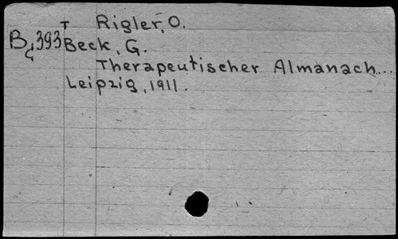 T Rigler, O.
B4393 Beck, G.
Therapeutischer Almanach...
Leipzig, 1911.